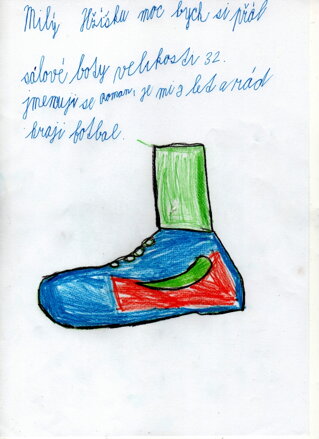 Milý Hžíšku moc bych si přál
sálové boty velikosti 32.
jmenuji se Roman, je mi 9 let a rád
hraji fotbal.